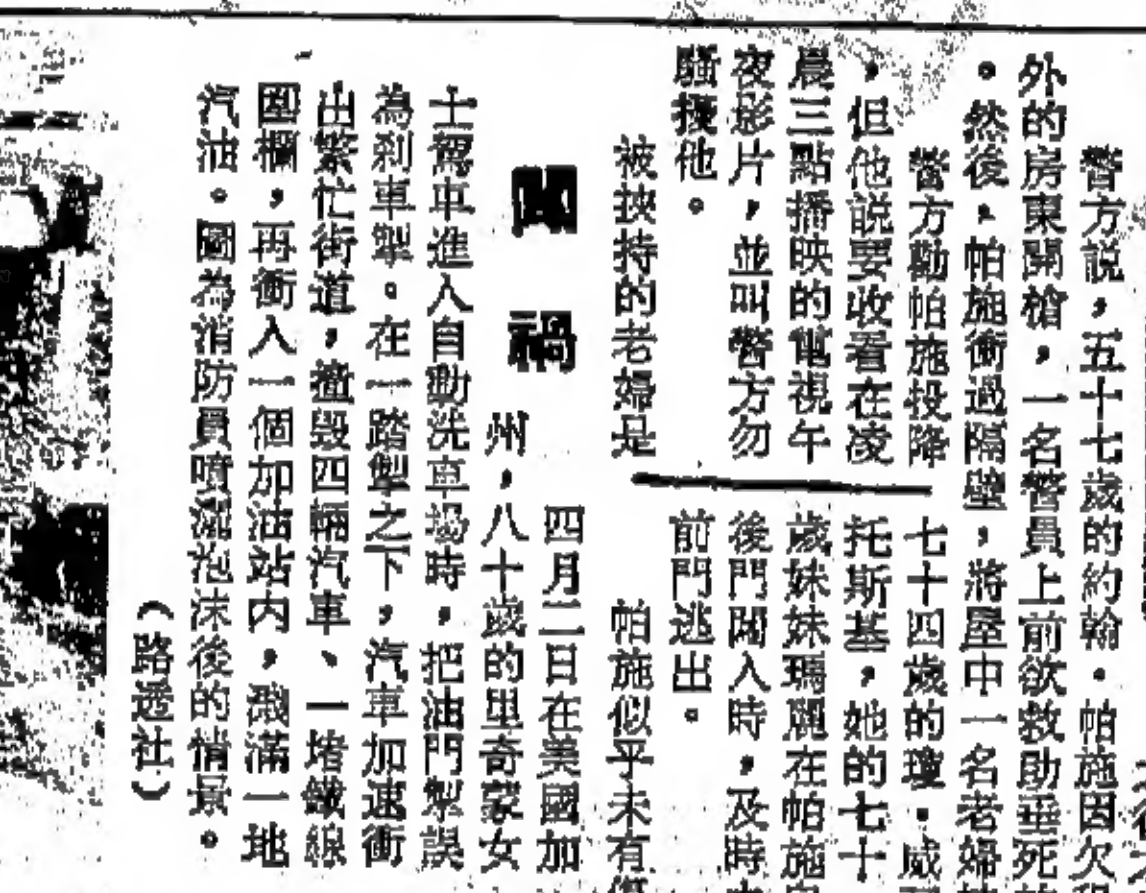 警方說,五十七歲的約翰.帕施因欠
外的房東開槍,一名警員上前欲救助垂死
。然後,帕施衝過隔壁,將屋中一名老婦
警方勸帕施投降
,但他說要收看在凌
晨三點播映的電視午
夜影片,並叫警方勿
騷擾他。
被挾持的老婦是
七十四歲的瓊.威
托斯基,她的七十
歲妹妹瑪麗在帕施
後門闖入時,及時
前門逃出。
帕施似乎未有
闖禍
四月二日在美國加
州,八十歲的里奇蒙女
士駕車進入自動洗車場時,把油門掣誤
為剎車掣。在一踏掣之下,汽車加速衝
出繁忙街道,撞毀四輛汽車、一堵鐵線
圍欄,再衝入一個加油站內,濺滿一地
汽油。圖為消防員噴灑泡沫後的情景。
(路透社)